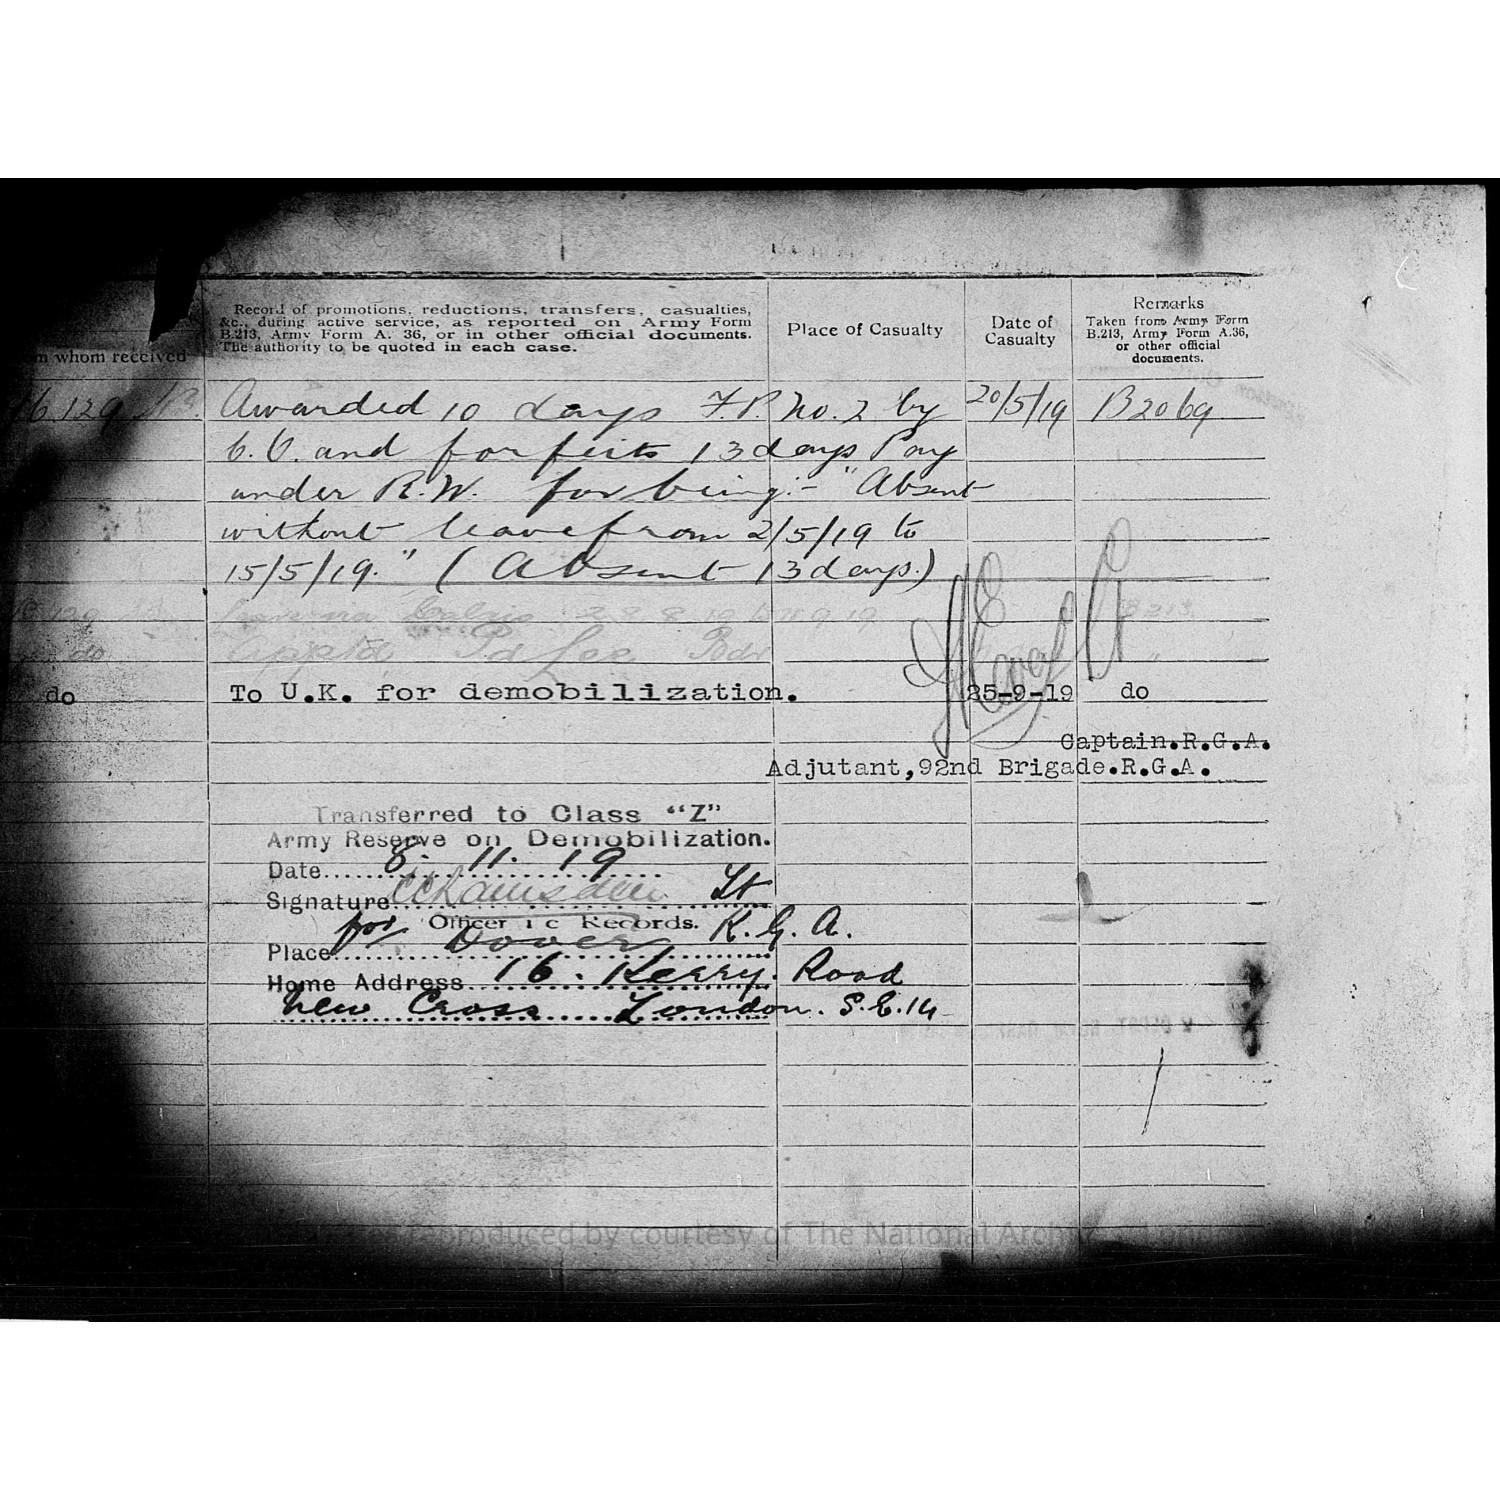 Record of promotions, reductions, transfers, casualties,
&c., during active service, as reported on Army Form
B.213, Army Form A. 36, or in other official documents.
The authority to be quoted in each case.
Place of Casualty
Date of
Casualty
Remarks
Taken from Army Form
B.213, Army Form A.36,
or other official
documents.
whom received
129 Awarded 10 days F.P. No. 2 by 20/5/19 B2069
C.O. and forfeits 13 days Pay
under R.W. for being:- "Absent
without leave from 2/5/19 to
15/5/19." (Absent 13 days.)
129 B213
do Appt'd Pd
do To U.K. for demobilization. 25-9-19 do
Captain.R.G.A.
Adjutant,92nd Brigade.R.G.A.
Transferred to Class "Z"
Army Reserve on Demobilization.
Date 8. 11. 19
Signature Lt
for Officer i c Records. R.G.A.
Place Dover
Home Address 16. Kerry. Road
New Cross London. S.E.14
reproduced by courtesy of The National Archives London